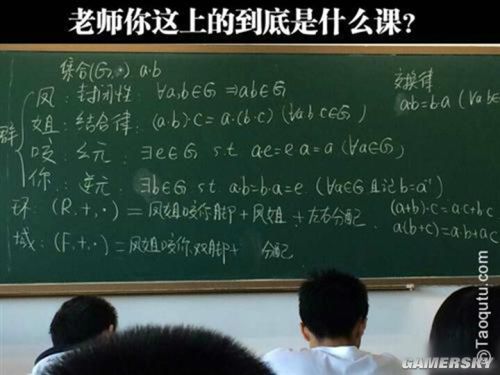 老师你这上的到底是什么课?
集合(G,·) a·b
交换律
ab=b·a (∀a,b∈
群
凤:封闭性: ∀a,b∈G ⇒ab∈G
姐:结合律: (a·b)·c=a·(b·c) (∀a,b,c∈G)
咬:幺元: ∃e∈G s.t ae=ea=a (∀a∈G)
你:逆元: ∃b∈G s.t a·b=b·a=e (∀a∈G 且记b=a⁻¹)
环:(R,+,·)=凤姐咬你脚+凤姐+左右分配.
(a+b)·c=ac+b·c
a(b+c)=a·b+ac
域:(F,+,·)=凤姐咬你双脚+ 分配.
©Taoqutu.com
GAMERSKY